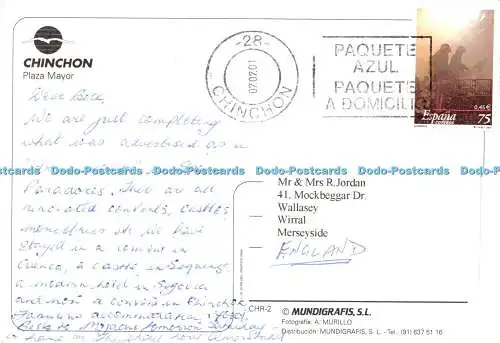 CHINCHON
Plaza Mayor
-28-
07.02.01
CHINCHON
PAQUETE
AZUL
PAQUETE
A DOMICILIO
0,45€
España
correos
75
Dear
We are just completing
what was advertised as a
Dodo-Postcards Dodo-Postcards Dodo-Postcards Dodo-Postcards Dodo-Postcards Dodo-Postcards
Paradores. They are all
renovated convents, castles,
monasteries etc. We have
stayed in a convent in
Cuenca, a castle in
a modern hotel in Segovia
and now a convent in Chinchon
accommodation
home on
Mr & Mrs R.Jordan
41, Mockbeggar Dr.
Wallasey
Wirral
Merseyside
ENGLAND
CHR-2
© MUNDIGRAFIS, S.L.
Fotografía: A. MURILLO
Distribución: MUNDIGRAFIS, S.L. - Tel. (91) 637 51 16